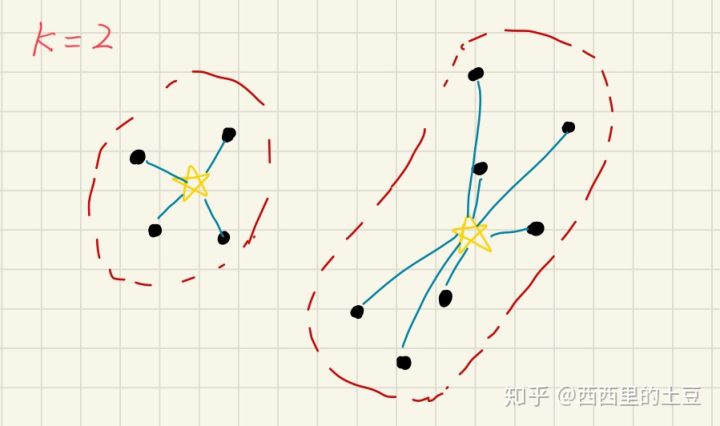 K=2
知乎 @西西里的土豆